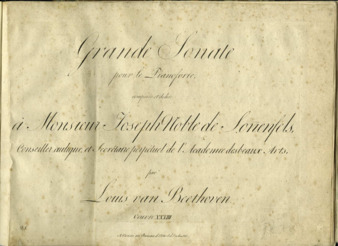 Grande Sonate
pour le Pianoforte,
composée et dediée
à Monsieur Joseph Noble de Soñenfels,
Conseiller aulique et Secrétaire perpétuel de l'Academie des beaux Arts.
par
Louis van Beethoven
Oeuvre XXVIII